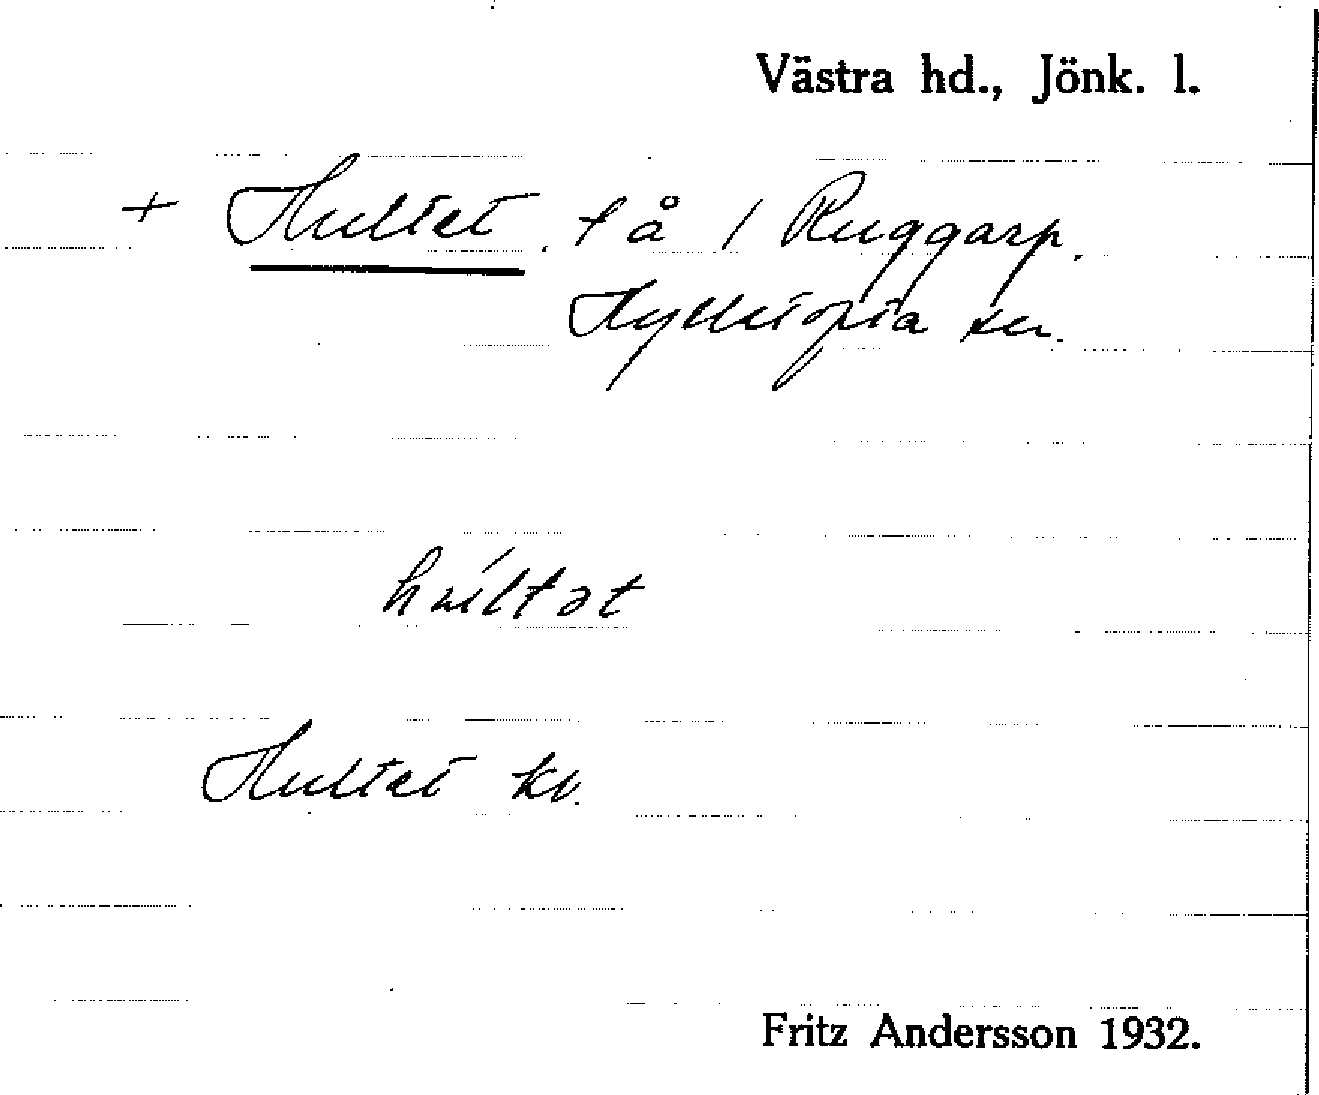 Västra hd., Jönk. l.
+ Hultet. t å / Ruggarp.
Hylletofta sn.
húltət
Hultet kv.
Fritz Andersson 1932.